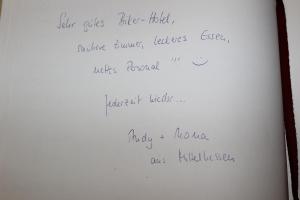 Sehr gutes Biker-Hotel,
saubere Zimmer, leckeres Essen,
nettes Personal !!! :)
Jederzeit wieder...
Andy + Mona
aus Mittelhessen